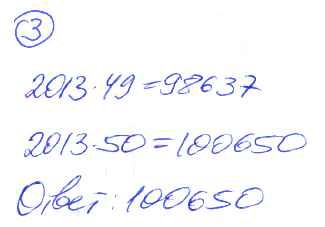 3
2013·49=98637
2013·50=100650
Ответ: 100650